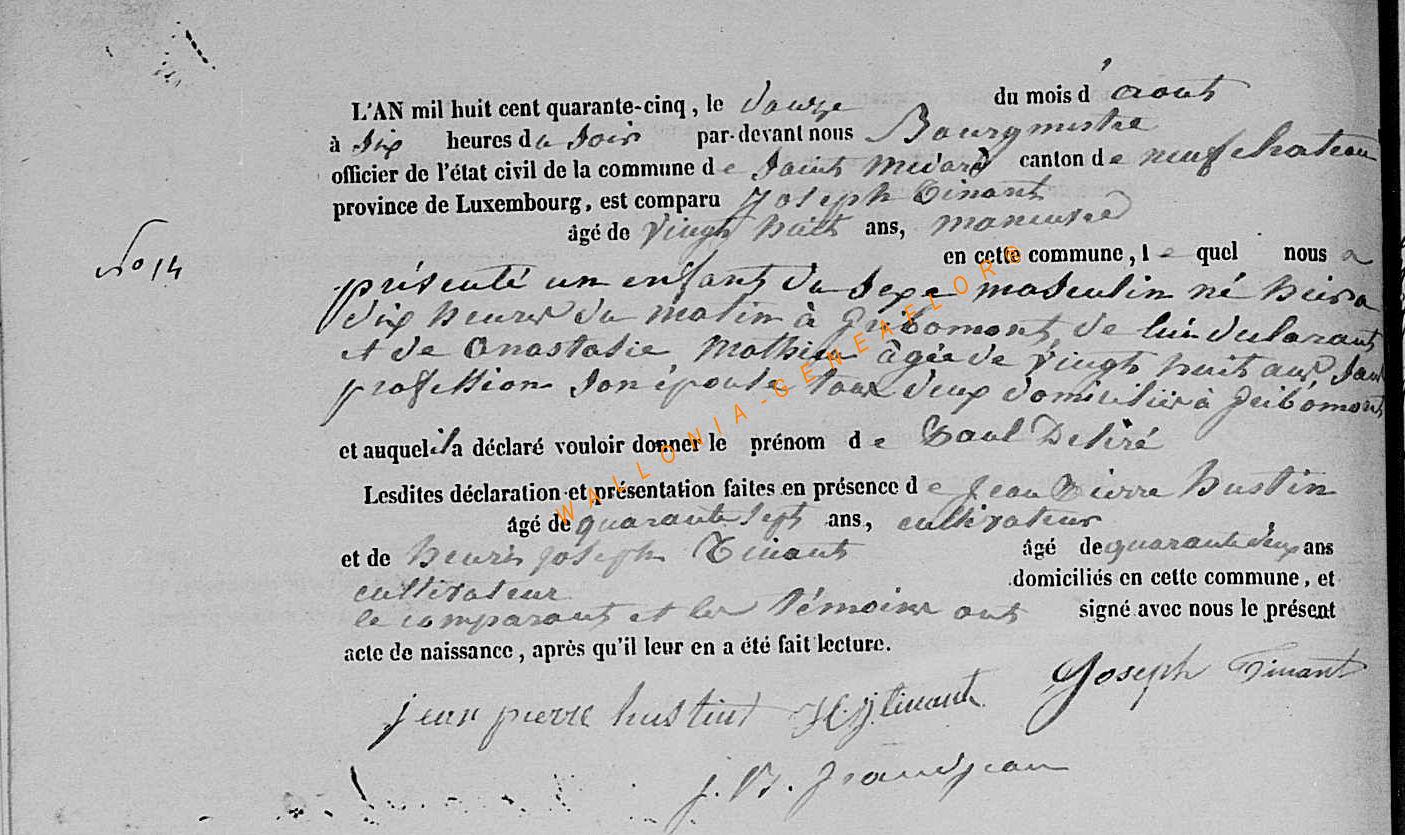 L'AN mil huit cent quarante-cinq, le douze du mois d'aout
à six heures du soir par-devant nous Bourgmestre
officier de l'état civil de la commune de Saint Medard canton de neufchateau
province de Luxembourg, est comparu Joseph Tinant
âgé de vingt huit ans, maneuvre
en cette commune, le quel nous a
No 14
présenté un enfant du sexe masculin né hier a
dix heures du matin à gribomont, de lui declarant
et de Anastasie Mathieu âgée de vingt huit ans, sans
profession son épouse tous deux domiciliés à gribomont,
et auquel il a déclaré vouloir donner le prénom de Paul Desiré
Lesdites déclaration et présentation faites en présence de Jean Pierre hustin
âgé de quarante sept ans, cultivateur
et de henri joseph Tinant âgé de quarante deux ans
cultivateur domiciliés en cette commune, et
le comparant et les témoins ont signé avec nous le présent
acte de naissance, après qu'il leur en a été fait lecture.
Joseph Tinant
jean pierre hustin H.j tinant
J. B. grandjean
WALLONIA-GENEAFLOR©